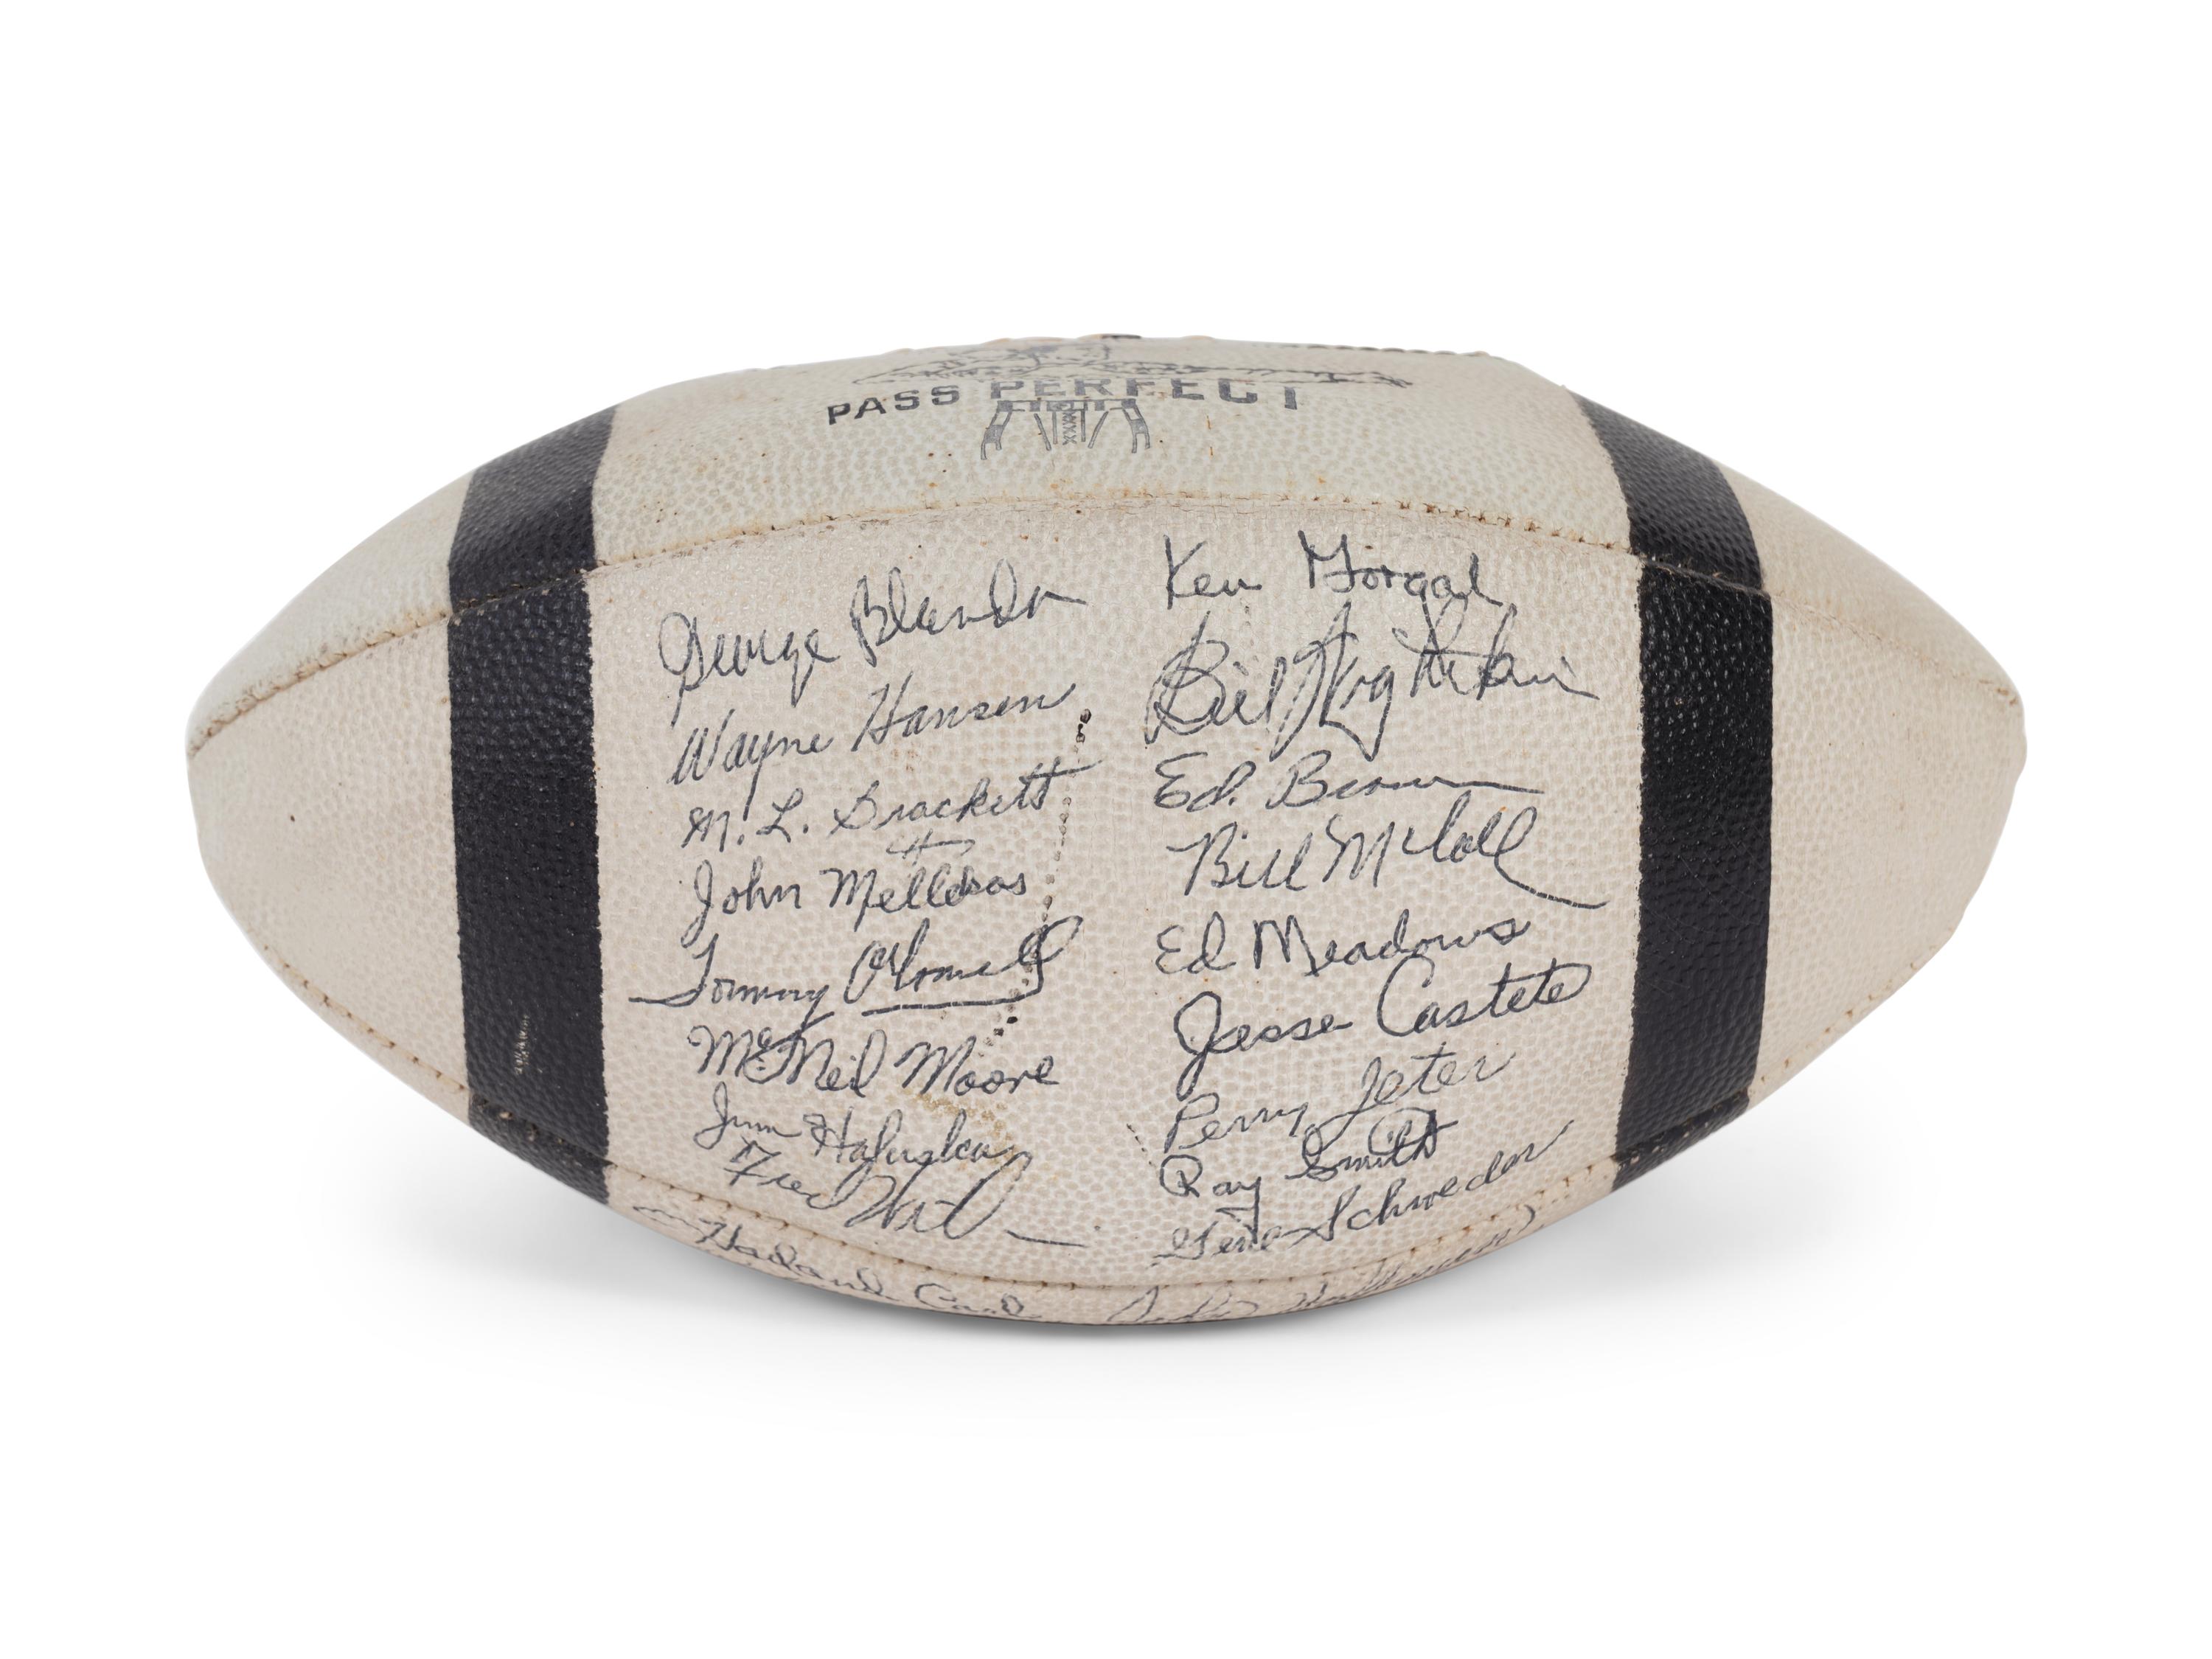 PASS PERFECT
George Blanda
Wayne Hansen
M. L. Brackett
John Mellekas
Tommy O'Connell
McNeil Moore
Jim Haluska
Fred
Harland Carl
Ken Gorgal
Bill Wightkin
Ed. Brown
Bill McColl
Ed Meadows
Jesse Castete
Perry Jeter
Ray Smith
Gene Schroeder